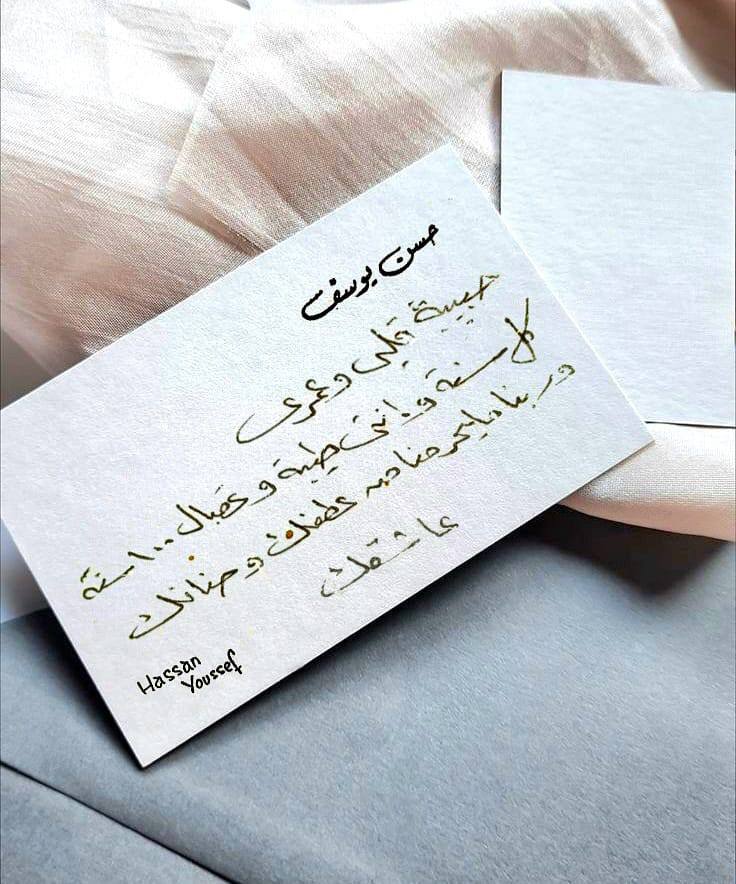 حسن يوسف
حبيبة قلبى وعمرى
كل سنة وانتى طيبة وعقبال ١٠٠ سنة
وربنا مايحرمنا من عطفك وحنانك
عاشقك
Hassan
Youssef